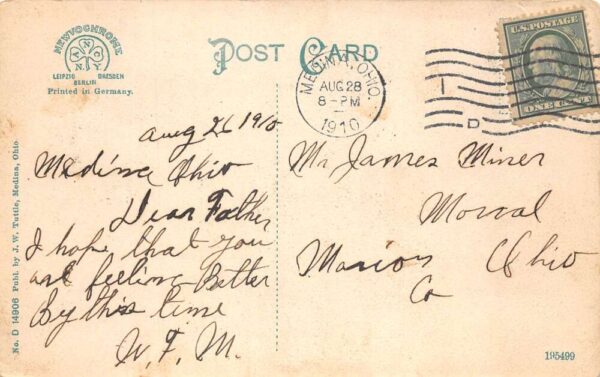 NEWVOCHROME
ANNCO
N.Y.
LEIPZIG DRESDEN
BERLIN
Printed in Germany.
POST CARD
MEDINA, OHIO.
AUG 28
8-PM
1910
1
D
U.S. POSTAGE
ONE CENT
Aug 26 1910
Medina Ohio
Dear Father
I hope that you
are feeling Better
By this time
W. F. M.
Mr James Miner
Morral
Marion Ohio
Co
No. D 14906 Publ. by J. W. Tuttle, Medina, Ohio
195499